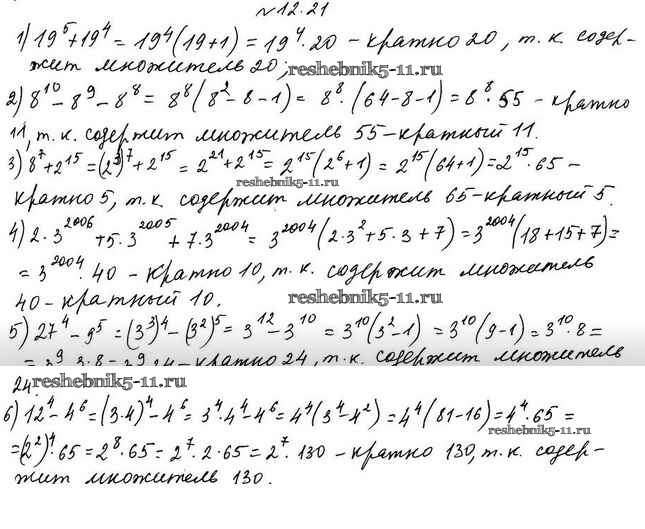 №12.21
1) 19⁵+19⁴ = 19⁴(19+1) = 19⁴·20 – кратно 20, т.к. содер-
жит множитель 20;
reshebnik5-11.ru
2) 8¹⁰-8⁹-8⁸ = 8⁸(8²-8-1) = 8⁸·(64-8-1) = 8⁸·55 – кратно
11, т.к. содержит множитель 55-кратный 11.
3) 8⁷+2¹⁵ = (2³)⁷+2¹⁵ = 2²¹+2¹⁵ = 2¹⁵(2⁶+1) = 2¹⁵(64+1) = 2¹⁵·65 –
reshebnik5-11.ru
кратно 5, т.к. содержит множитель 65-кратный 5.
4) 2·3²⁰⁰⁶+5·3²⁰⁰⁵+7·3²⁰⁰⁴ = 3²⁰⁰⁴(2·3²+5·3+7) = 3²⁰⁰⁴(18+15+7) =
= 3²⁰⁰⁴·40 – кратно 10, т.к. содержит множитель
40-кратный 10.
reshebnik5-11.ru
5) 27⁴-9⁵ = (3³)⁴-(3²)⁵ = 3¹²-3¹⁰ = 3¹⁰(3²-1) = 3¹⁰(9-1) = 3¹⁰·8 =
= 3⁹·3·8 = 3⁹·24 – кратно 24, т.к. содержит множитель
24.
reshebnik5-11.ru
6) 12⁴-4⁶ = (3·4)⁴-4⁶ = 3⁴·4⁴-4⁶ = 4⁴(3⁴-4²) = 4⁴(81-16) = 4⁴·65 =
reshebnik5-11.ru
= (2²)⁴·65 = 2⁸·65 = 2⁷·2·65 = 2⁷·130 – кратно 130, т.к. содер-
жит множитель 130.